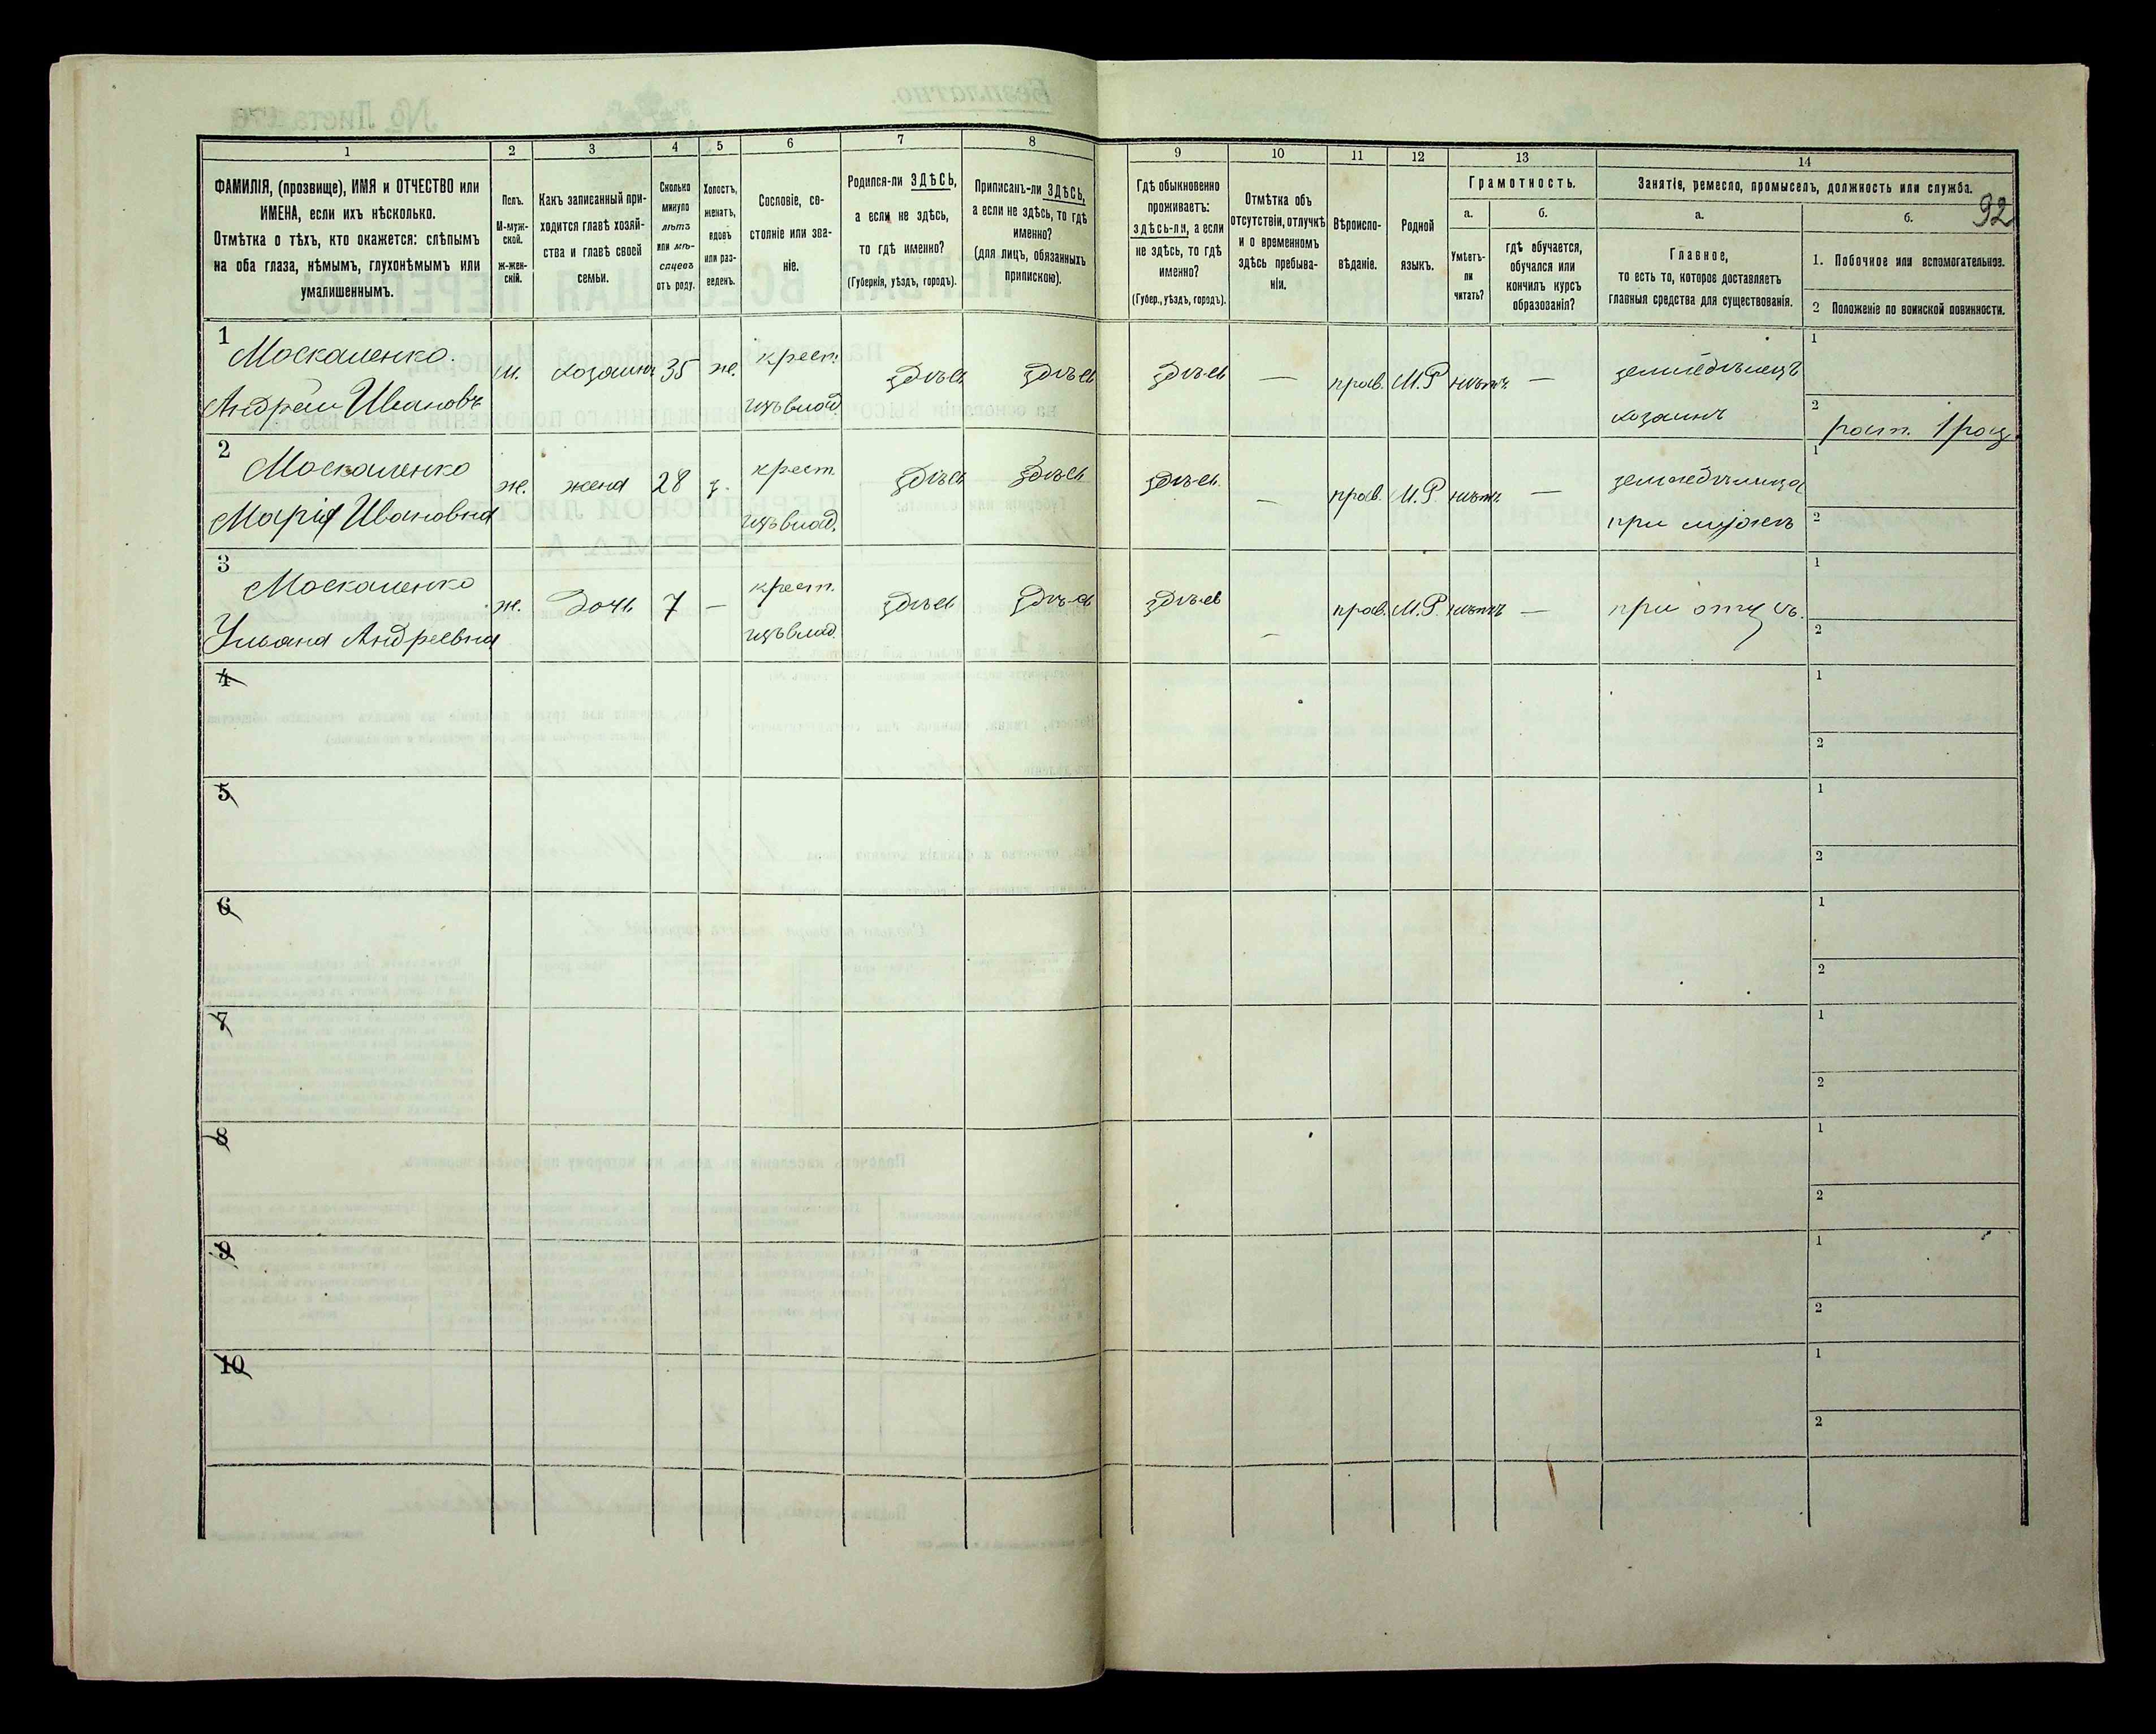 1 2 3 4 5 6 7 8 9 10 11 12 13 14
92
ФАМИЛІЯ, (прозвище), ИМЯ и ОТЧЕСТВО или
ИМЕНА, если ихъ нѣсколько.
Отмѣтка о тѣхъ, кто окажется: слѣпымъ
на оба глаза, нѣмымъ, глухонѣмымъ или
умалишеннымъ.
Полъ.
М-муж-
ской.
Ж-жен-
скій.
Какъ записанный при-
ходится главѣ хозяй-
ства и главѣ своей
семьи.
Сколько
минуло
лѣтъ
или мѣ-
сяцевъ
отъ роду.
Холостъ,
женатъ,
вдовъ
или раз-
веденъ.
Сословіе, со-
стояніе или зва-
ніе.
Родился-ли ЗДѢСЬ,
а если не здѣсь,
то гдѣ именно?
(Губернія, уѣздъ, городъ).
Приписанъ-ли ЗДѢСЬ,
а если не здѣсь, то гдѣ
именно?
(для лицъ, обязанныхъ
припискою).
Гдѣ обыкновенно
проживаетъ:
здѣсь-ли, а если
не здѣсь, то гдѣ
именно?
(Губер., уѣздъ, городъ).
Отмѣтка объ
отсутствіи, отлучкѣ
и о временномъ
здѣсь пребыва-
ніи.
Вѣроиспо-
вѣданіе.
Родной
языкъ.
Грамотность.
а.
Умѣетъ-
ли
читать?
б.
гдѣ обучается,
обучался или
кончилъ курсъ
образованія?
Занятіе, ремесло, промыселъ, должность или служба.
а.
Главное,
то есть то, которое доставляетъ
главныя средства для существованія.
б.
1. Побочное или вспомогательное.
2 Положеніе по воинской повинности.
1
Москаленко
Андрей Ивановъ
м. хозяинъ 35 ж. крест.
изъ влад.
здѣсь здѣсь здѣсь — прав. М.Р нѣтъ — земледѣлецъ
хозяинъ
1
2
2
Москаленко
Марія Ивановна
ж. жена 28 з. крест.
изъ влад.
здѣсь здѣсь здѣсь — прав. М.Р. нѣтъ — земледѣлица
при мужѣ
1
2
3
Москаленко
Ульяна Андреевна
ж. дочь 7 — крест.
изъ влад.
здѣсь здѣсь здѣсь — прав. М.Р. нѣтъ — при отцѣ.
1
2
4
1
2
5
1
2
6
1
2
7
1
2
8
1
2
9
1
2
10
1
2